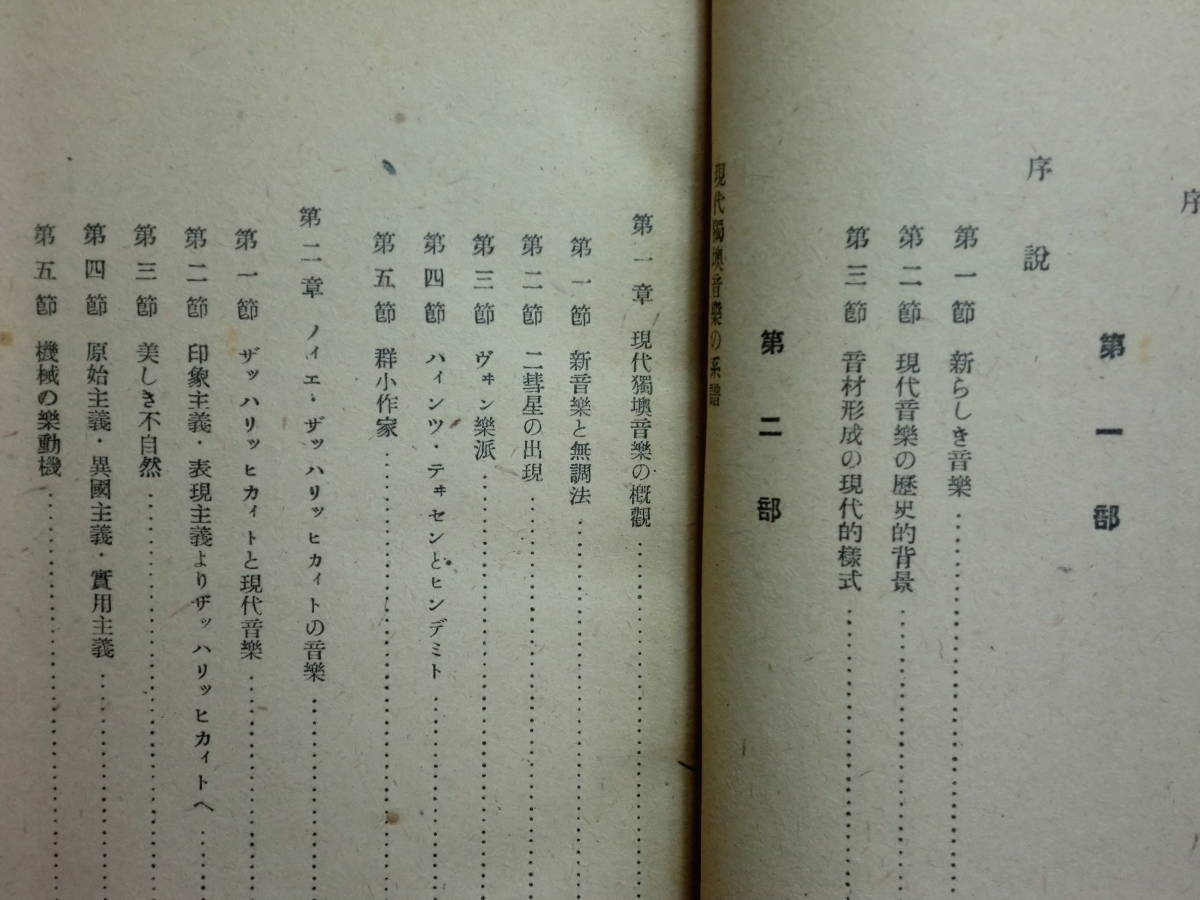 序
第一部
序說
第一節 新らしき音樂
第二節 現代音樂の歷史的背景
第三節 音材形成の現代的樣式
第二部
現代獨墺音樂の系譜
第一章 現代獨墺音樂の槪觀
第一節 新音樂と無調法
第二節 二彗星の出現
第三節 ヴヰン樂派
第四節 ハインツ・テヰセンとヒンデミト
第五節 群小作家
第二章 ノイエ・ザッハリッヒカイトの音樂
第一節 ザッハリッヒカイトと現代音樂
第二節 印象主義・表現主義よりザッハリッヒカイトへ
第三節 美しき不自然
第四節 原始主義・異國主義・實用主義
第五節 機械の樂動機